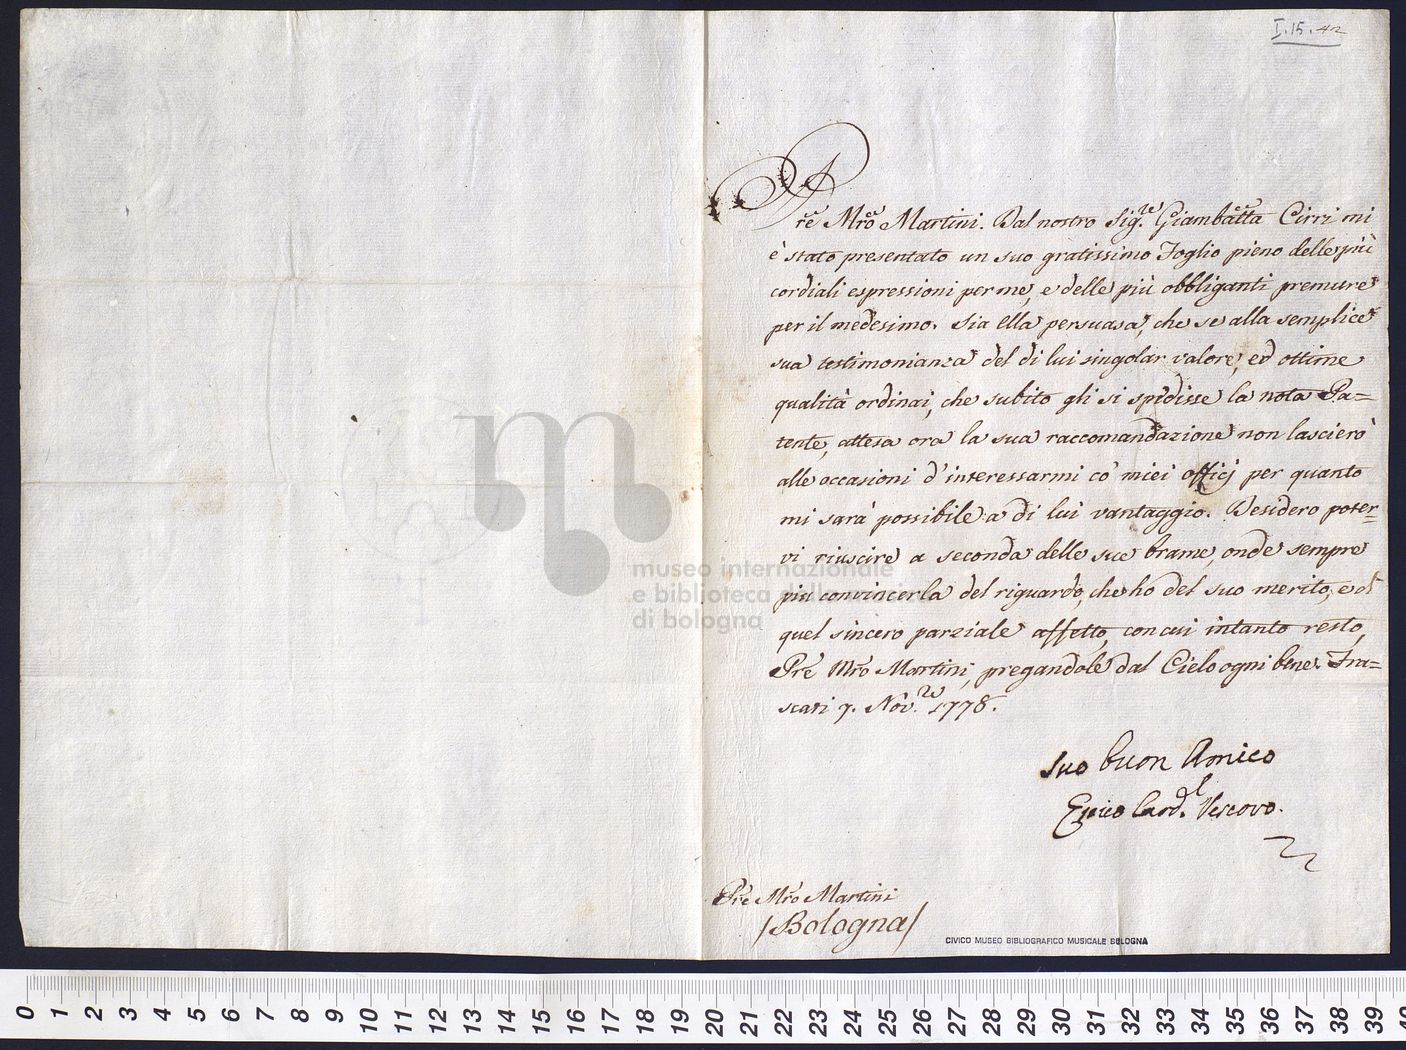 I.15.42
Pre Mro Martini. Dal nostro Sig.re Giambatta Cirri mi
è stato presentato un suo gratissimo Foglio pieno delle più
cordiali espressioni per me, e delle più obbliganti premure
per il medesimo. Sia ella persuasa, che se alla semplice
sua testimonianza del di lui singolar valore, ed ottime
qualità ordinai, che subito gli si spedisse la nota Pa=
tente, attesa ora la sua raccomandazione non lascierò
alle occasioni d'interessarmi co' miei officj per quanto
mi sarà possibile a di lui vantaggio. Desidero poter=
vi riuscire a seconda delle sue brame, onde sempre
più convincerla del riguardo, che ho del suo merito, e di
quel sincero parziale affetto, con cui intanto resto,
Pre Mro Martini, pregandole dal Cielo ogni bene. Fra=
scati 7. Nov.re 1778.
Suo buon Amico
Enrico Card.l Vescovo.
Pre Mro Martini
/Bologna/
CIVICO MUSEO BIBLIOGRAFICO MUSICALE BOLOGNA
museo internazionale
e biblioteca della musica
di bologna
0 1 2 3 4 5 6 7 8 9 10 11 12 13 14 15 16 17 18 19 20 21 22 23 24 25 26 27 28 29 30 31 32 33 34 35 36 37 38 39 40